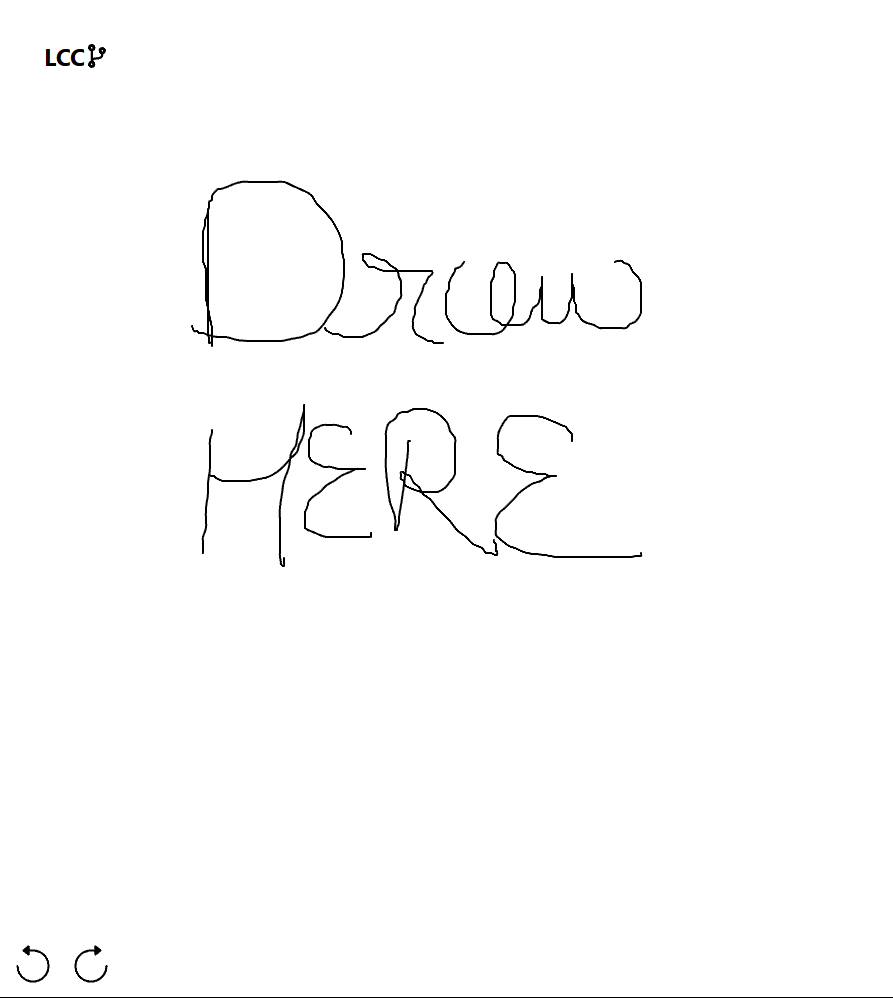 LCC
Draw
HERE